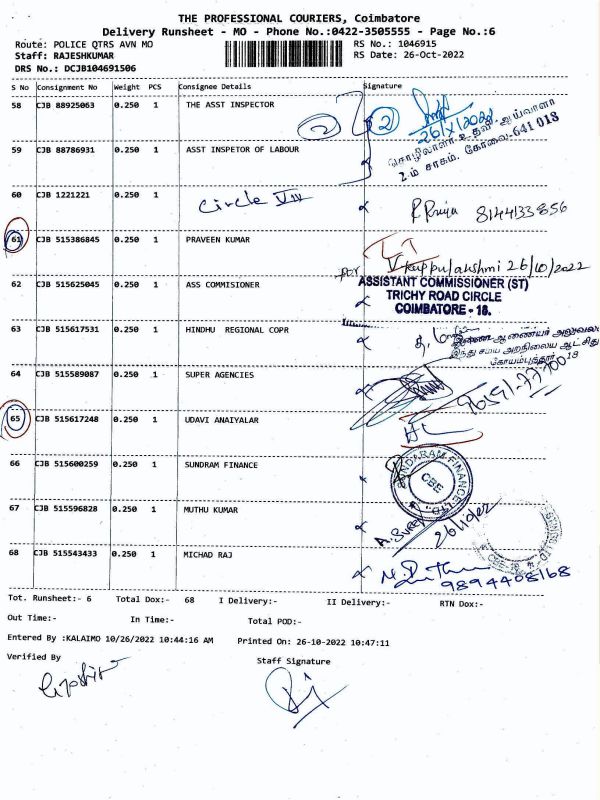 THE PROFESSIONAL COURIERS, Coimbatore
Delivery Runsheet - MO - Phone No.:0422-3505555 - Page No.:6
Route: POLICE QTRS AVN MO
RS No.: 1046915
Staff: RAJESHKUMAR
RS Date: 26-Oct-2022
DRS No.: DCJB104691506
S No Consignment No Weight PCS Consignee Details Signature
58 CJB 88925063 0.250 1 THE ASST INSPECTOR
2 2
26/X/2022
தொழிலாளர் உதவி ஆய்வாளர்
2-ம் சரகம், கோவை-641 018
59 CJB 88786931 0.250 1 ASST INSPETOR OF LABOUR
60 CJB 1221221 0.250 1
Circle VIII
R Priya 8144133856
61 CJB 515386845 0.250 1 PRAVEEN KUMAR
for V.kuppulakshmi 26/10/2022
62 CJB 515625045 0.250 1 ASS COMMISIONER
ASSISTANT COMMISSIONER (ST)
TRICHY ROAD CIRCLE
COIMBATORE - 18.
63 CJB 515617531 0.250 1 HINDHU REGIONAL COPR
இணை ஆணையர் அலுவல
இந்து சமய அறநிலைய ஆட்சிது
கோயம்புத்தூர் 18
64 CJB 515589087 0.250 1 SUPER AGENCIES
65 CJB 515617248 0.250 1 UDAVI ANAIYALAR
66 CJB 515600259 0.250 1 SUNDRAM FINANCE
SUNDARAM FINANCE LTD
CBE
67 CJB 515596828 0.250 1 MUTHU KUMAR
68 CJB 515543433 0.250 1 MICHAD RAJ
9894408168
Tot. Runsheet:- 6 Total Dox:- 68 I Delivery:- II Delivery:- RTN Dox:-
Out Time:- In Time:- Total POD:-
Entered By :KALAIMO 10/26/2022 10:44:16 AM Printed On: 26-10-2022 10:47:11
Verified By
Staff Signature